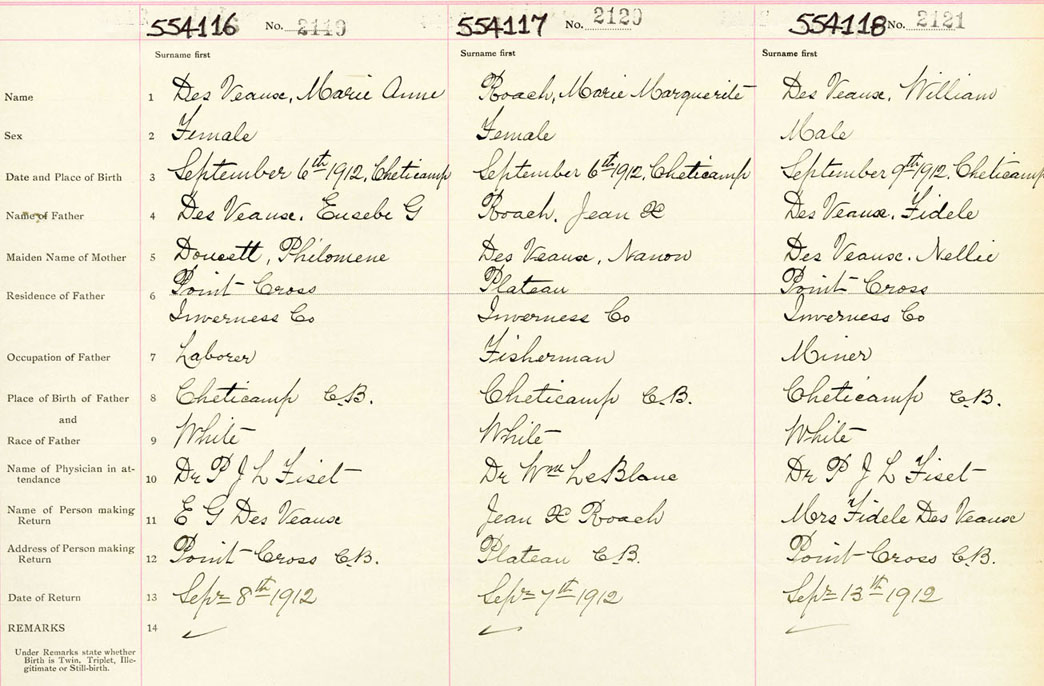 554116 No. 2119 554117 No. 2120 554118 No. 2121
Surname first Surname first Surname first
Name 1 Des Veaux, Marie Anne Roach, Marie Marguerite Des Veaux, William
Sex 2 Female Female Male
Date and Place of Birth 3 September 6th 1912, Cheticamp September 6th 1912, Cheticamp September 9th 1912, Cheticamp
Name of Father 4 Des Veaux, Eusebe G Roach, Jean X Des Veaux, Fidele
Maiden Name of Mother 5 Doucett, Philomene Des Veaux, Nanon Des Veaux. Nellie
Residence of Father 6 Point Cross Plateau Point Cross
Inverness Co Inverness Co Inverness Co
Occupation of Father 7 Laborer Fisherman Miner
Place of Birth of Father 8 Cheticamp C.B. Cheticamp C.B. Cheticamp C.B.
and
Race of Father 9 White White White
Name of Physician in at-
tendance 10 Dr P J L Fiset Dr Wm LeBlanc Dr P J L Fiset
Name of Person making
Return 11 E G Des Veaux Jean X Roach Mrs Fidele Des Veaux
Address of Person making
Return 12 Point Cross C.B. Plateau C.B. Point Cross C.B.
Date of Return 13 Sepr 8th 1912 Sepr 7th 1912 Sepr 13th 1912
REMARKS 14
Under Remarks state whether
Birth is Twin, Triplet, Ille-
gitimate or Still-birth.